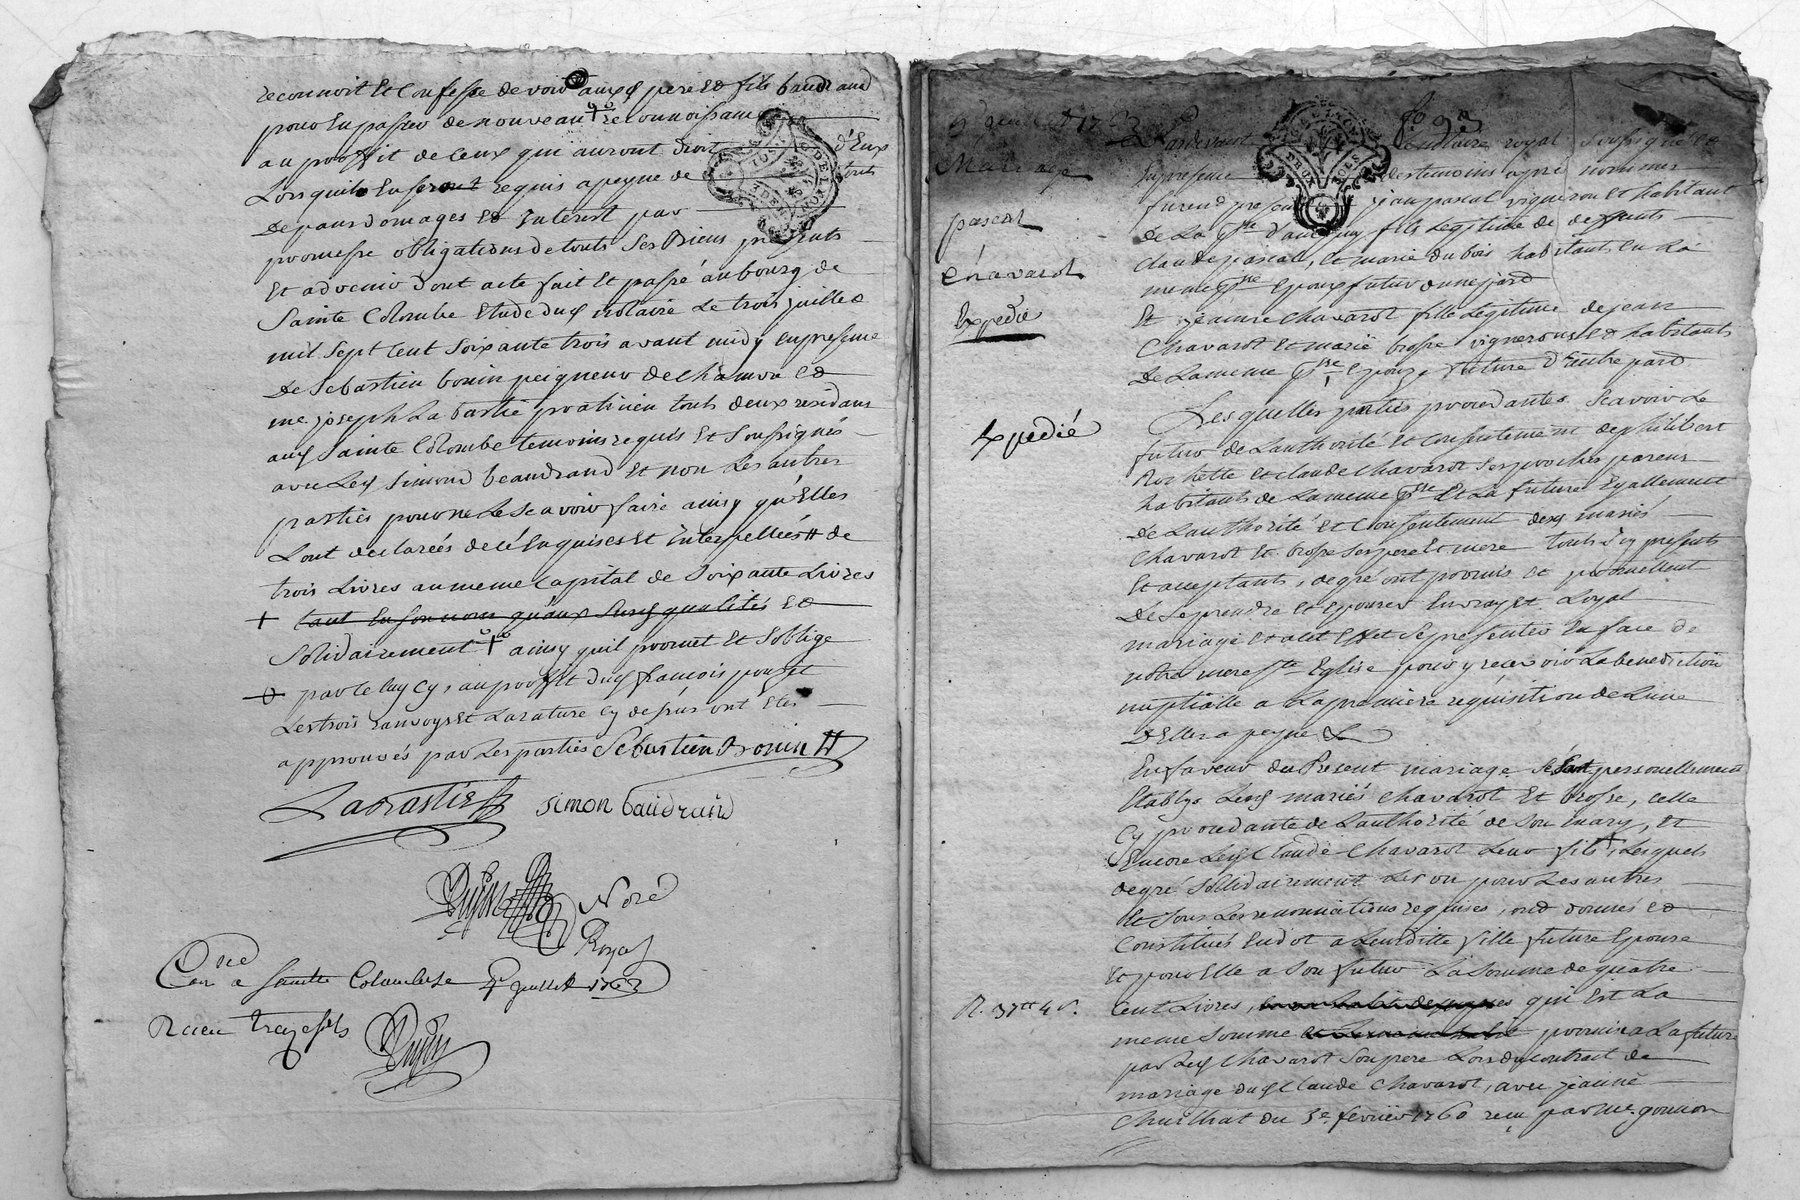 reconnoit et confesse devoir auxs pere et fils baudrand
pour en passer de nouveau reconnoissance
au proffit de ceux qui auront droit d'Eux
Lorsquils en seront requis a peyne de touts
depans domages et Interest par
promesse obligations de touts ses Biens présents
et advenir dont acte fait et passé au bourg de
Sainte Colombe Etude dus notaire Le trois juillet
mil sept cent soixante trois avant midy en presence
de Sebastien bouin peigneur de chamvre et
me joseph La bastie praticien touts deux residans
aus Sainte Colombe temoins requis et soussignés
avec Les simond beaudrand et non Les autres
parties pour ne Le scavoir faire ainsy qu'Elles
L'ont declarées de ce Enquises et interpellées # de
trois Livres au meme Capital de soixante Livres
+ tant en son nom qu'aux susd qualités et
solidairement + ainsy quil promet et s'oblige
par le luy cy, au proffit dus françois
Les trois ranvoys et La rature cy dessus ont Eté
approuvés par Les parties Sébastien Brouin
Labastie simon baudrand
Noré
Royal
Con a Sainte Colombe 4e juillet 1763
Receu treze sols
juillet 1763
Mariage
pascal
Chavarot
Expedié
Expedié
R. 37tt 4s.
Pardevant Le notaire royal soussigné et
En presence des temoins apres nommés
furent presents jean pascal vigneron et habitant
de La psse fils Legitime de deffunts
claude pascal, et marie dubois habitant en La
meme psse Epoux futur d'une part
Et jeanne Chavarot fille Legitime de jean
Chavarot et marie brosse vignerons et habitants
de La meme psse Epouse future d'autre part
Les quelles parties procedantes scavoir Le
futur de L'authorité et Consentement de philibert
Rochette et claude Chavarot ses proches parens
habitants de La meme psse et La future Egallement
de L'authorité et Consentement des mariés
Chavarot et brosse ses pere et mere touts icy presents
et acceptants, de gré ont promis et promettent
de se prendre et Epouser en vray et Loyal
mariage et a cet Effet se presenter En face de
notre mere ste Eglise pour y recevoir La benediction
nuptialle a La premiere réquisition de L'une
d'Elles a peyne &
En faveur du Present mariage se sont personellement
Etablys Les mariés Chavarot et brosse, celle
cy procedante de L'authorité de son mary, et
Encore Les Claude Chavarot Leur fils, Lesquels
de gré solidairement Les un pour Les autres
et sous Les renonciations requises, ont donnés et
Constitués En dot a Leurditte fille future Epouse
et pour Elle a son futur La somme de quatre
cent Livres, qui Est La
meme somme promise a La future
par Les Chavarot son pere Lors du contract de
mariage dus Claude Chavarot, avec jeanne
Chuilhat du 3e fevrier 1760 recu par me. gonnon